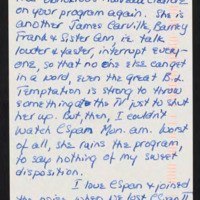 on your program again. She is
another James Carville, Barney
Frank & Sister Ann ie talk
louder & faster, interrupt every-
one, so that no one else can get
in a word, even the great B.L.
Temptation is strong to throw
something at the TV just to shut
her up. But, then, I couldn't
watch CSpan Mon. am. Worst
of all, she ruins the program,
to say nothing of my sweet
disposition.
I love CSpan & joined
the noise when we lost CSpan II